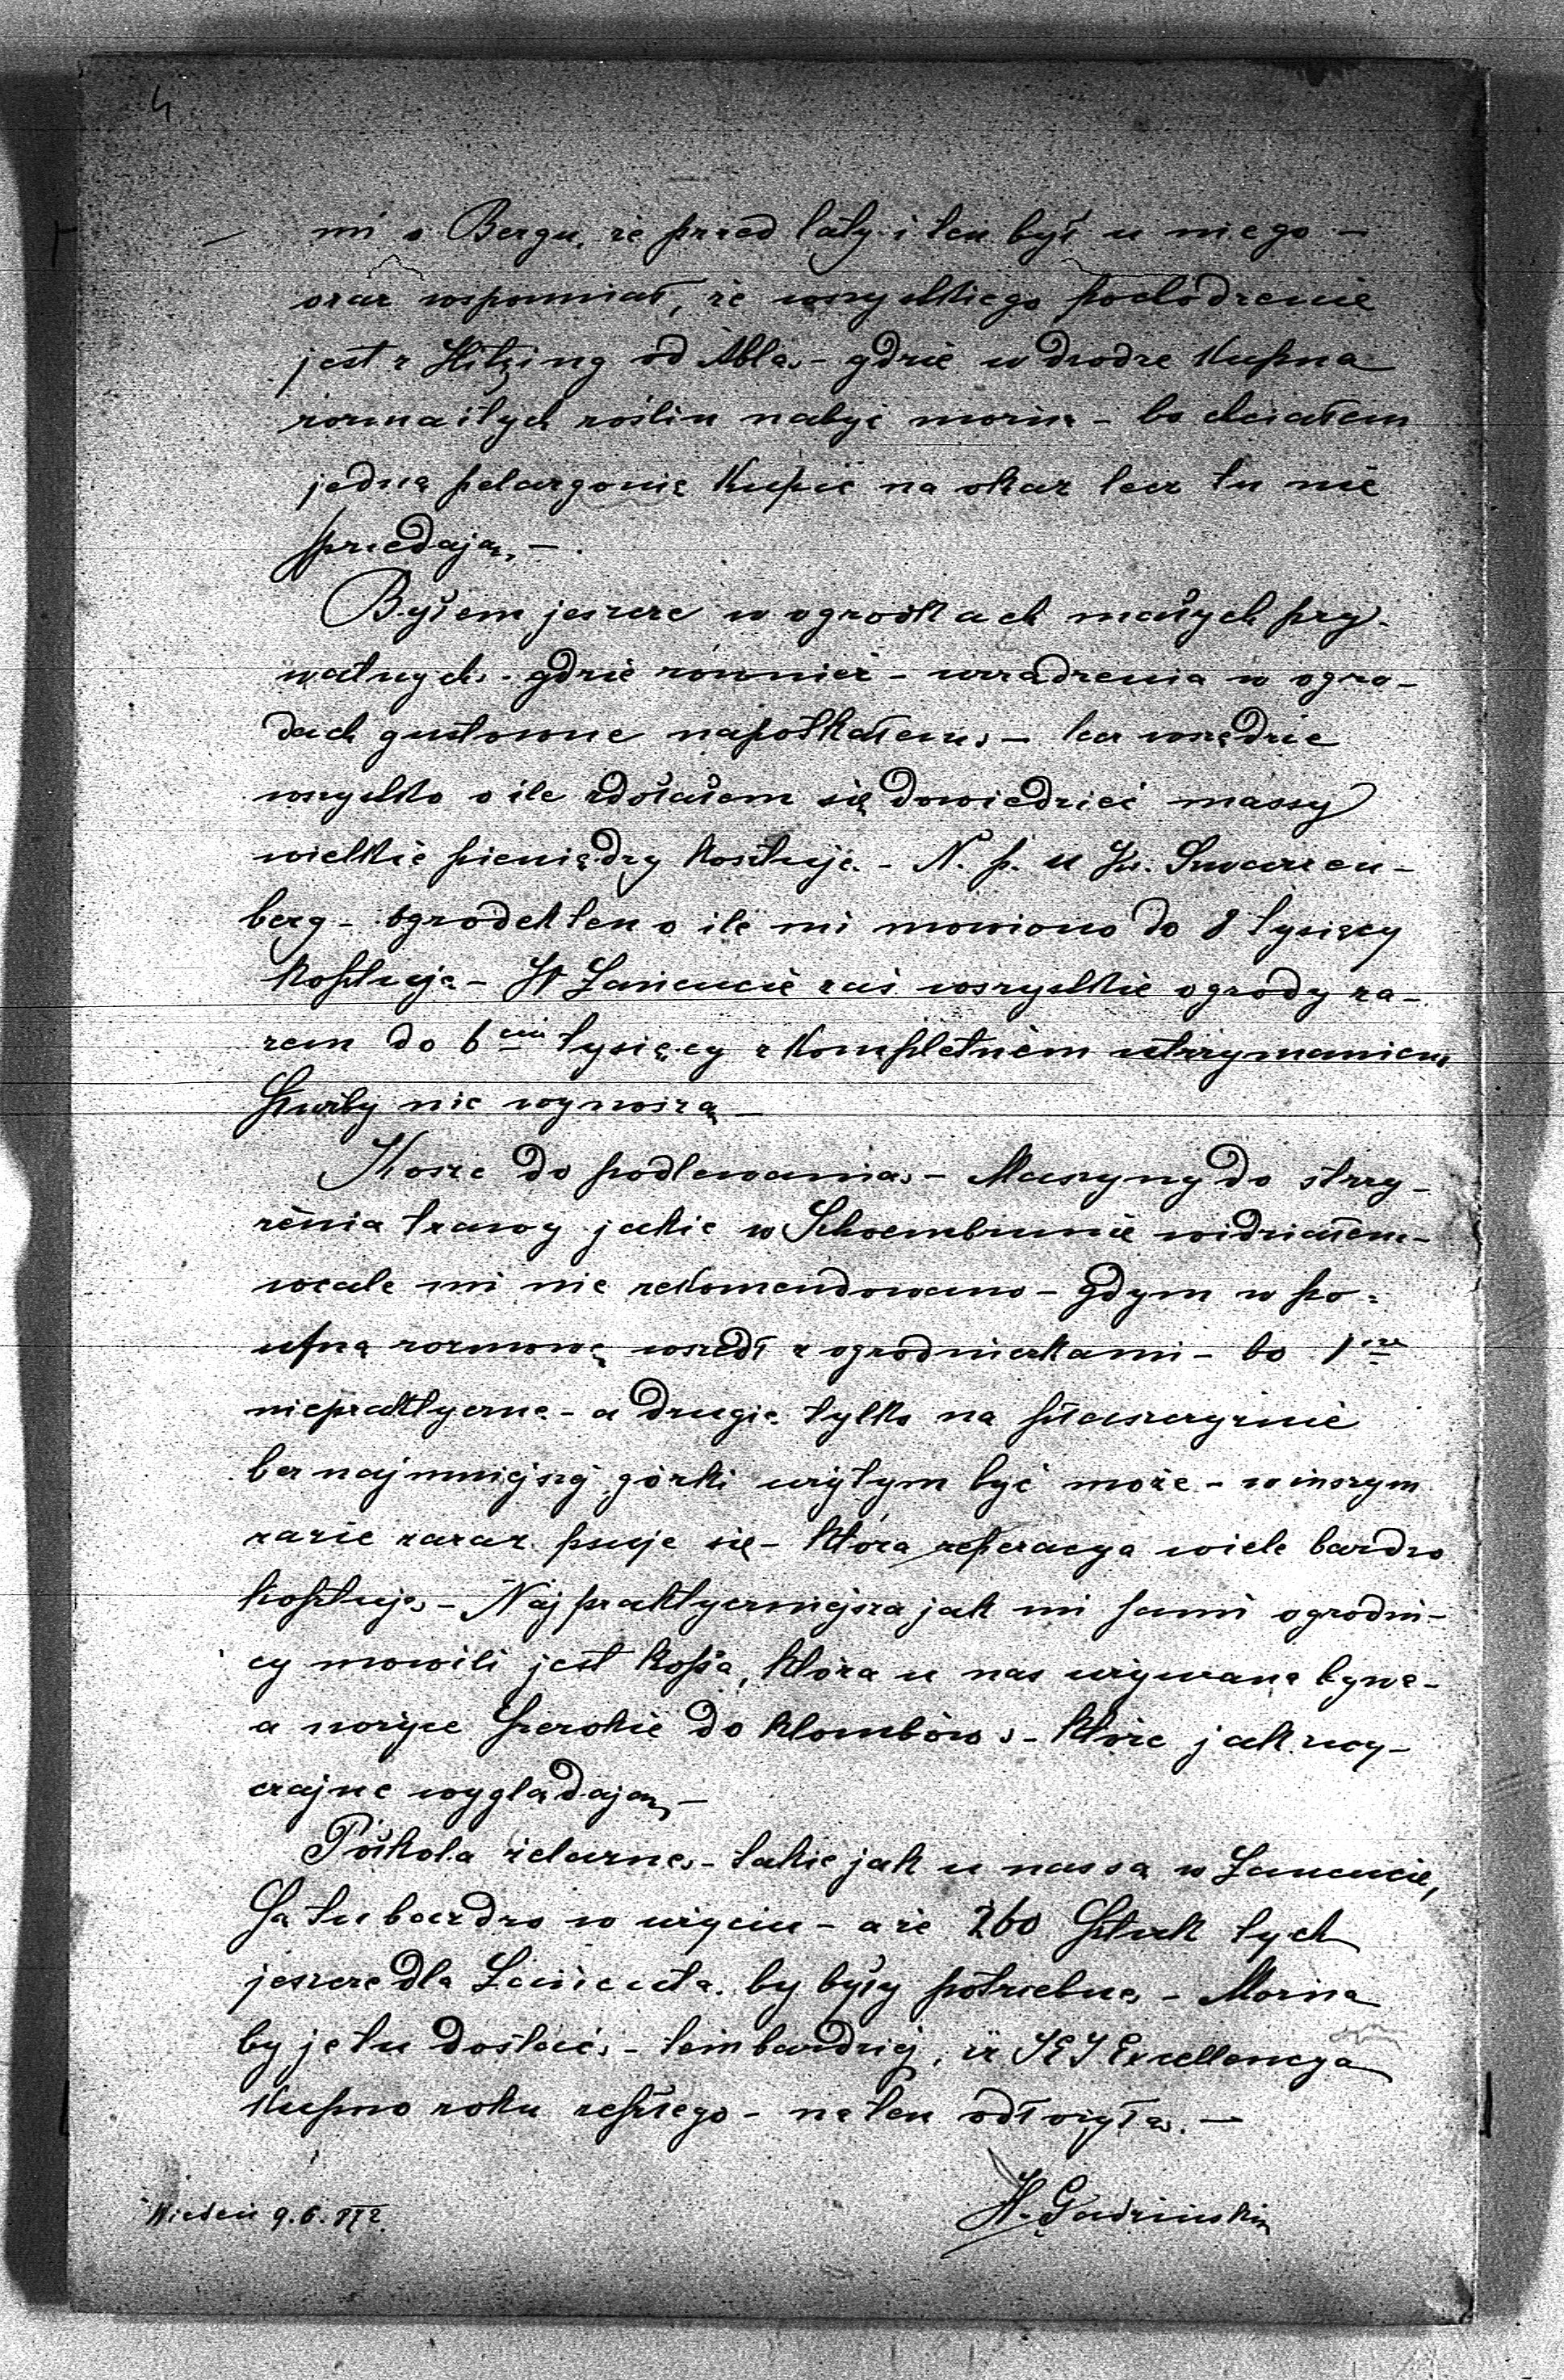 4
mi o Bergu, że przed laty i ten był u niego –
oraz wspomniał, że wszystkiego pochodzenie
jest z Hitzing od Abla, – gdzie w drodze kupna
rozmaitych roślin nabyć można – bo chciałem
jedną pelargonię kupić na okaz lecz tu nie
przedają, –.
Byłem jeszcze w ogrodkach małych pry-
watnych, – gdzie również – urządzenia w ogro-
dach gustowne napotkałem, – lecz wszędzie
wszystko o ile zdołałem się dowiedzieć massy
wielkie pieniędzy kosztuje. – N. p. u Ks. Swarcen-
berg – ogrodek ten o ile mi mowiono do 8 tysięcy
kosztuje – W Łancucie zaś wszystkie ogrody ra-
zem do 6ciu tysięcy z kompletnem utrzymaniem
służby nie wynoszą –
Kosze do podlewania, – Maszyny do strzy-
żenia trawy jakie w Schoembrunie widziałem –
wcale mi nie rekomendowano – gdym w po-
ufną rozmowę wszedł z ogrodniczkami – bo 1sze
niepraktyczne – a drugie tylko na płaszczyznie
bez najmniejszej górki użytym być może – w inszym
razie zaraz psuje się – która reperacya wiele bardzo
kosztuje, – Najpraktyczniejsza jak mi sami ogrodni-
cy mowili jest kosa, która u nas używana bywa –
a nożyce szerokie do klombów, – które jak zwy-
czajne wyglądają, –
Półkola żelazne, – takie jak u nas są w Łancucie,
są tu bardzo w użyciu – a że 260 sztuk tych
jeszcze dla Łańcuta by były potrzebne, – Można
by je tu dostać, – tembardziej, iż JEJ Excellencya
kupno roku zeszłego – na ten odłożyła. –
Wiedeń 9. 6. 872.